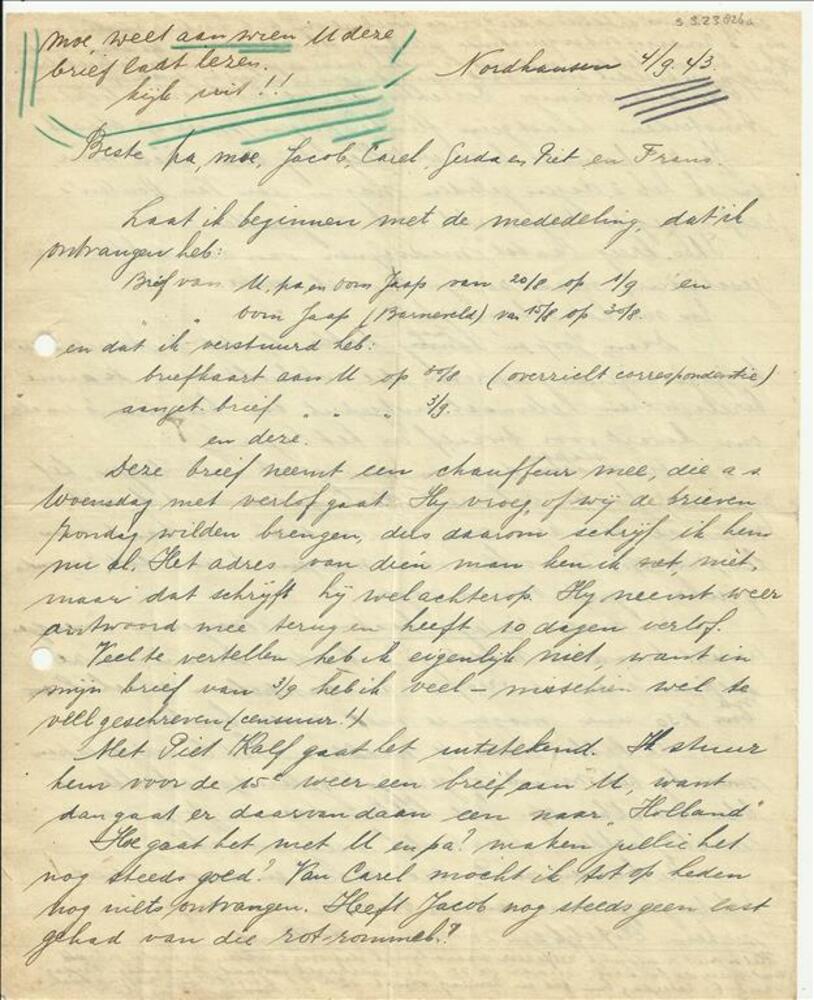 S 3.23 826a
Moe, weet aan wien U deze
brief laat lezen.
kijk uit!!
Nordhausen 4/9. 43.
Beste pa, moe, Jacob, Carel, Gerda en Piet en Frans.
Laat ik beginnen met de mededeling, dat ik
ontvangen heb:
Brief van U, pa en oom Jaap van 20/8 op 1/9 en
" " oom Jaap (Barneveld) van 15/8 op 30/8.
en dat ik verstuurd heb:
briefkaart aan U op /8 (overzicht correspondentie)
aanget. brief " " " 3/9.
en deze.
Deze brief neemt een chauffeur mee, die a s
Woensdag met verlof gaat. Hij vroeg, of wij de brieven
Zondag wilden brengen, dus daarom schrijf ik hem
nu al. Het adres van dién man ken ik niet,
maar dat schrijft hij wel achterop. Hij neemt weer
antwoord mee terug en heeft 10 dagen verlof.
Veel te vertellen heb ik eigenlijk niet, want in
mijn brief van 3/9 heb ik veel – misschien wel te
veel geschreven (censuur!)
Met Piet Kalf gaat het uitstekend. Ik stuur
hem voor de 15e weer een brief aan U, want
dan gaat er daarvandaan een naar "Holland"
Hoe gaat het met U en pa? maken jullie het
nog steeds goed? Van Carel mocht ik tot op heden
nog niets ontvangen. Heeft Jacob nog steeds geen last
gehad van die rot-rommel?